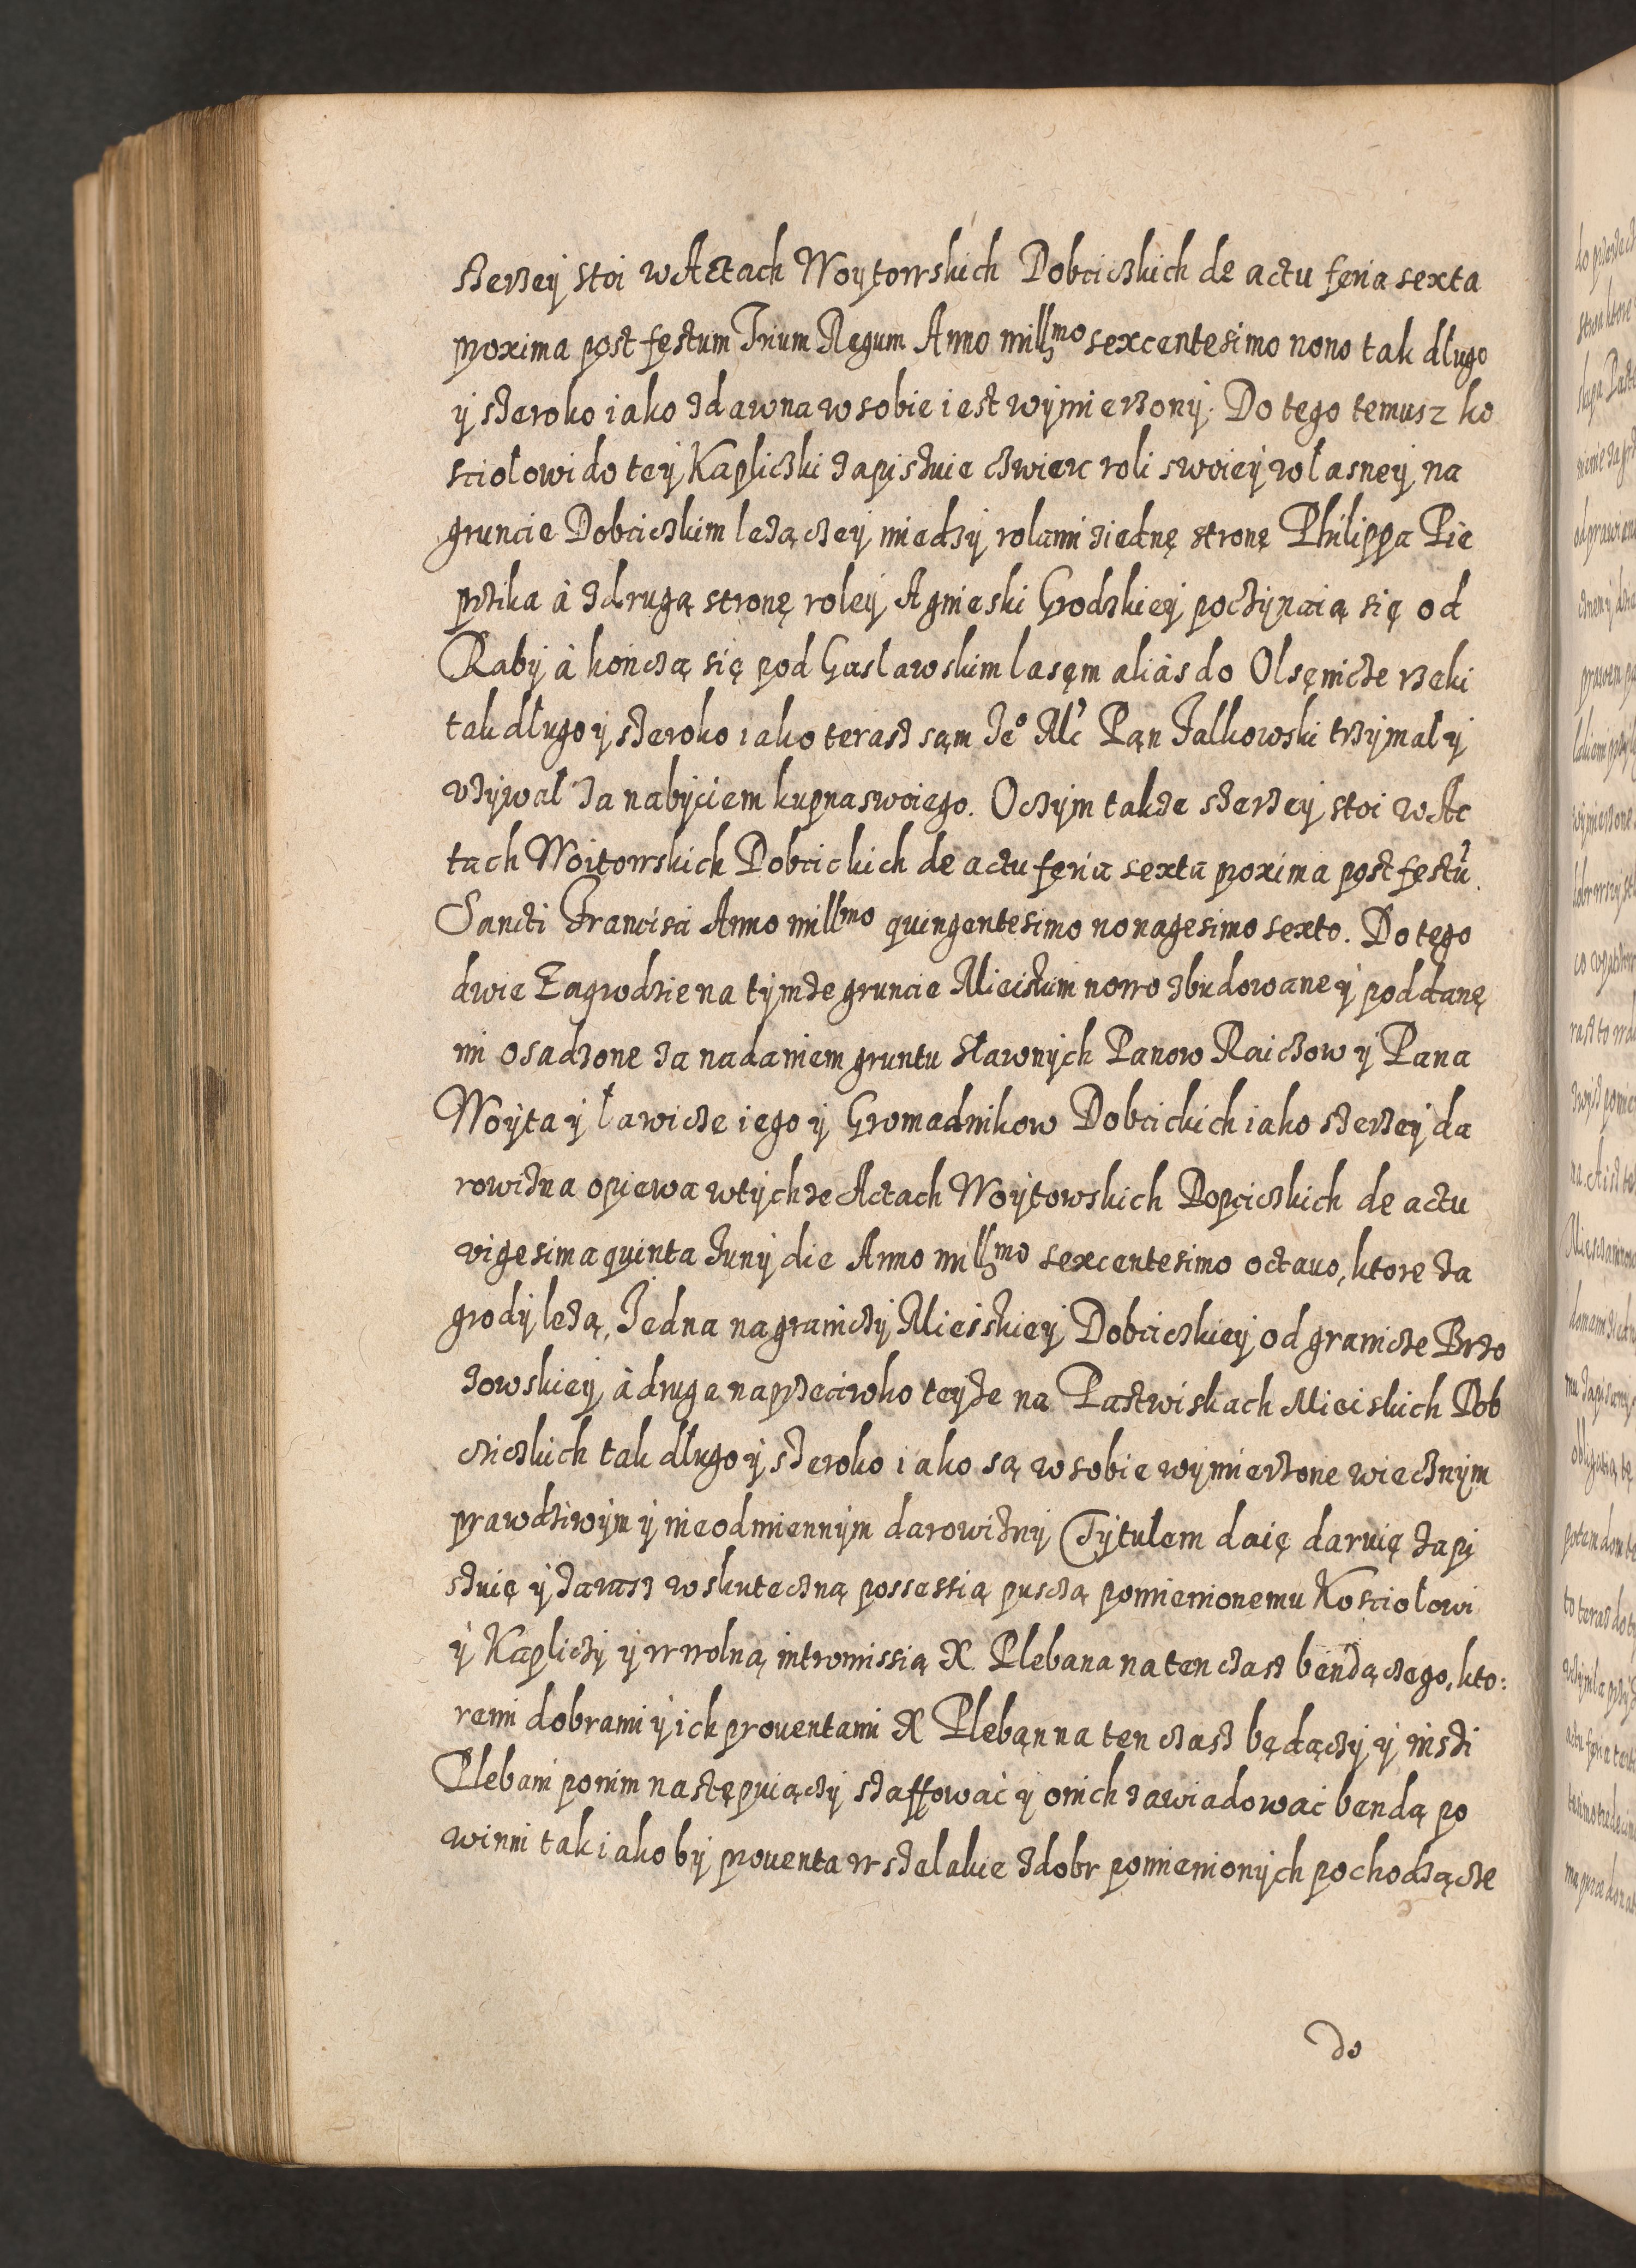 szerzey stoi w Actach Woytowskich Dobciczkich de actu feria sexta
proxima post festum Trium Regum Anno millmo sexcentesimo nono tak dlugo
ÿ szeroko iako zdawna w sobie iest wÿmierzonÿ. Do tego temusz ko
sciolowi do teÿ Kapliczki zapiszuie czwierc roli swoieÿ wlasneÿ na
gruncie Dobciczkim lezączeÿ miedzÿ rolami ziednę stronę Philippa Pie
przika à zdrugą stronę roleÿ Agnieski Grodzkieÿ poczÿnaią się od
Rabÿ à kończą się pod Gaslawskim lasęm aliàs do Olsęnicze rzeki
tak dlugo ÿ szeroko iako terasz sąm Jeo Mć Pąn Jalkowski trzÿmal ÿ
vzÿwal za nabÿciem kupna swoiego. Oczÿm takze szerzeÿ stoi w Ac
tach Woitowskich Dobcickich de actu feria sexta proxima post festū
Sancti Francisci Anno millmo quingentesimo nonagesimo sexto. Do tego
dwie Zagrodzie na tÿmze gruncie Mieiszkim nowo zbudowane ÿ poddanę
mi osadzone za nadaniem gruntu slawnÿch Panow Raiczow ÿ Pana
Woÿta ÿ lawicze iego ÿ Gromadnikow Dobcickich iako szerzeÿ da
rowizna opiewa wtÿchze Actach Woÿtowskich Dopciczkich de actu
vigesima quinta Junÿ die Anno millmo sexcentesimo octauo, ktore za
grodÿ lezą, Jedna na graniczÿ Mieiskieÿ Dobciczkieÿ od granicze Brzo
zowskieÿ, à druga naprzeciwko teÿze na Pastwiskach Mieiskich Dob
cziczkich tak dlugo ÿ szeroko iako są w sobie wÿmierzone wiecznÿm
prawdziwÿm ÿ nieodmiennÿm darowiznÿ Tÿtulem daię daruię zapi
szuię ÿ zarasz w skuteczną possessią puszczą pomienionemu Kosciolowi
ÿ Kapliczÿ ÿ w wolną intromissią X. Plebana na ten czasz bendączego, kto:
remi dobrami ÿ ich prouentami X Plebąn na ten czasz będączÿ ÿ inszi
Plebani ponim nastẹpuiączÿ szaffować ÿ onich zawiadować bendą po
winni tak iakobÿ prouenta wszelakie zdobr pomienionÿch pochodzącze
do